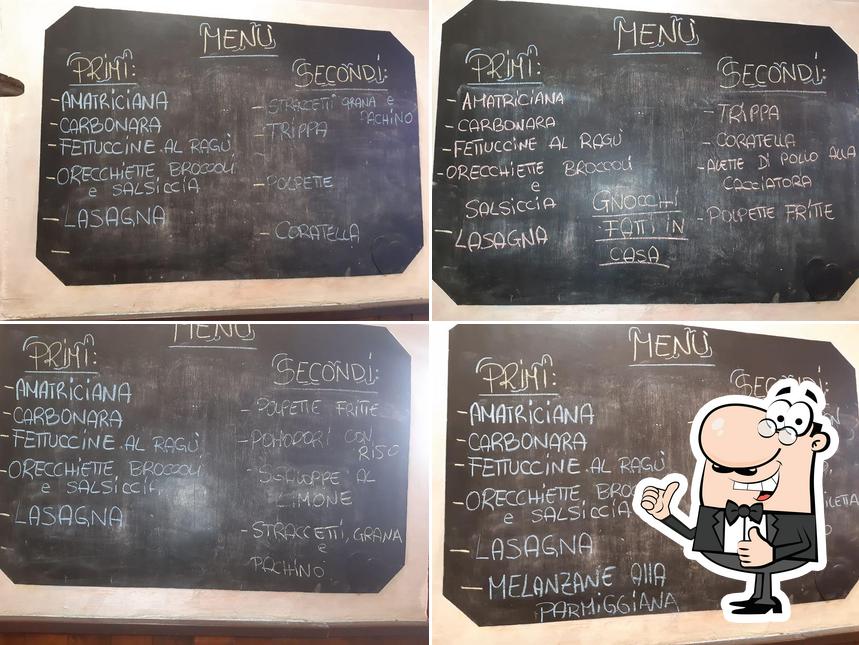 MENÙ
PRIMI:
- AMATRICIANA
- CARBONARA
- FETTUCCINE AL RAGÙ
- ORECCHIETTE BROCCOLI
e SALSICCIA
- LASAGNA
-
SECONDI:
- STRACCETTI GRANA e
PACHINO
- TRIPPA
- POLPETTE
- CORATELLA
MENÙ
PRIMI:
- AMATRICIANA
- CARBONARA
- FETTUCCINE AL RAGÙ
- ORECCHIETTE BROCCOLI
e
SALSICCIA
- LASAGNA
GNOCCHI
FATTI IN
CASA
SECONDI:
- TRIPPA
- CORATELLA
- ALETTE DI POLLO ALLA
CACCIATORA
- POLPETTE FRITTE
MENÙ
PRIMI:
- AMATRICIANA
- CARBONARA
- FETTUCCINE AL RAGÙ
- ORECCHIETTE BROCCOLI
e SALSICCIA
- LASAGNA
SECONDI:
- POLPETTE FRITTE
- POMODORI CON
RISO
- SCALOPPE AL
LIMONE
- STRACCETTI, GRANA
e
PACHINO
MENÙ
PRIMI:
- AMATRICIANA
- CARBONARA
- FETTUCCINE AL RAGÙ
- ORECCHIETTE
e SALSICCIA
- LASAGNA
- MELANZANE Alla
PARMIGGIANA
SECONDI: